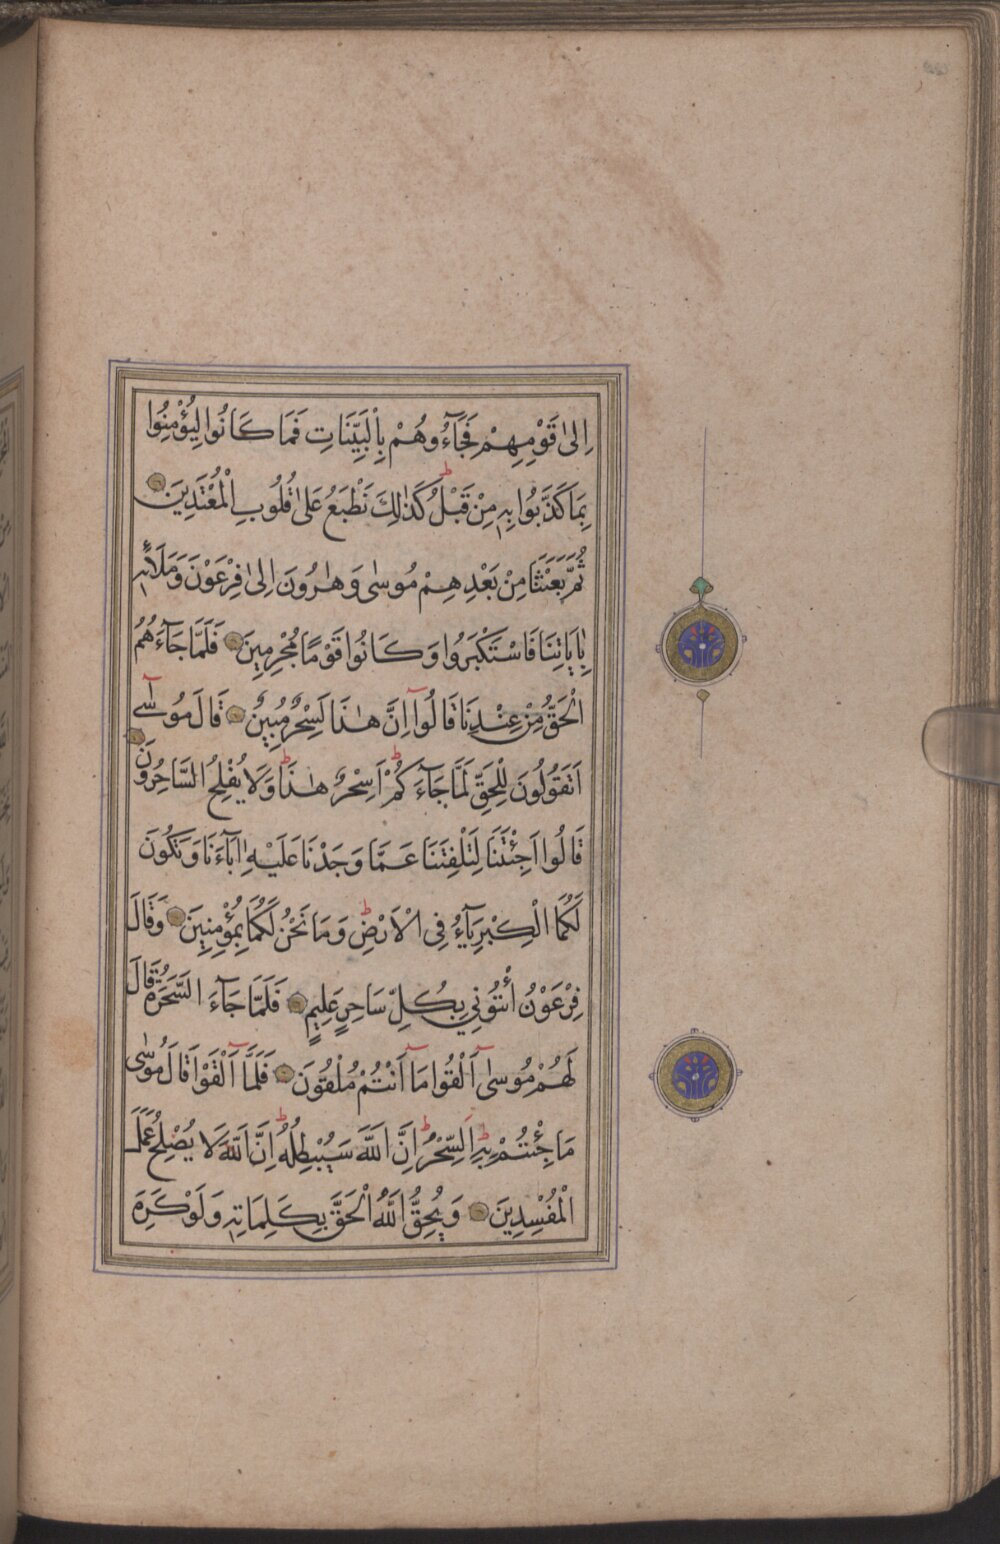 اِلىٰ قَوْمِهِمْ فَجَآءُوهُمْ بِالْبَيِّنَاتِ فَمَا كَانُوا لِيُؤْمِنُوا
بِمَا كَذَّبُوا بِهٖ مِنْ قَبْلُ كَذٰلِكَ نَطْبَعُ عَلىٰ قُلُوبِ الْمُعْتَدِينَ
ثُمَّ بَعَثْنَا مِنْ بَعْدِهِمْ مُوسٰى وَهٰرُونَ اِلىٰ فِرْعَوْنَ وَمَلَائِهٖ
بِاٰيَاتِنَا فَاسْتَكْبَرُوا وَكَانُوا قَوْمًا مُجْرِمِينَ فَلَمَّا جَآءَهُمُ
الْحَقُّ مِنْ عِنْدِنَا قَالُوآ اِنَّ هٰذَا لَسِحْرٌ مُبِينٌ قَالَ مُوسٰٓى
اَتَقُولُونَ لِلْحَقِّ لَمَّا جَآءَكُمْ اَسِحْرٌ هٰذَا وَلَا يُفْلِحُ السَّاحِرُونَ
قَالُوا اَجِئْتَنَا لِتَلْفِتَنَا عَمَّا وَجَدْنَا عَلَيْهِ اٰبَآءَنَا وَتَكُونَ
لَكُمَا الْكِبْرِيَآءُ فِى الْاَرْضِ وَمَا نَحْنُ لَكُمَا بِمُؤْمِنِينَ وَقَالَ
فِرْعَوْنُ اُئْتُونِي بِكُلِّ سَاحِرٍ عَلِيمٍ فَلَمَّا جَآءَ السَّحَرَةُ قَالَ
لَهُمْ مُوسٰٓى اَلْقُوا مَآ اَنْتُمْ مُلْقُونَ فَلَمَّآ اَلْقَوْا قَالَ مُوسٰى
مَا جِئْتُمْ بِهِ السِّحْرُ اِنَّ اللّٰهَ سَيُبْطِلُهُ اِنَّ اللّٰهَ لَا يُصْلِحُ عَمَلَ
الْمُفْسِدِينَ وَيُحِقُّ اللّٰهُ الْحَقَّ بِكَلِمَاتِهٖ وَلَوْ كَرِهَ